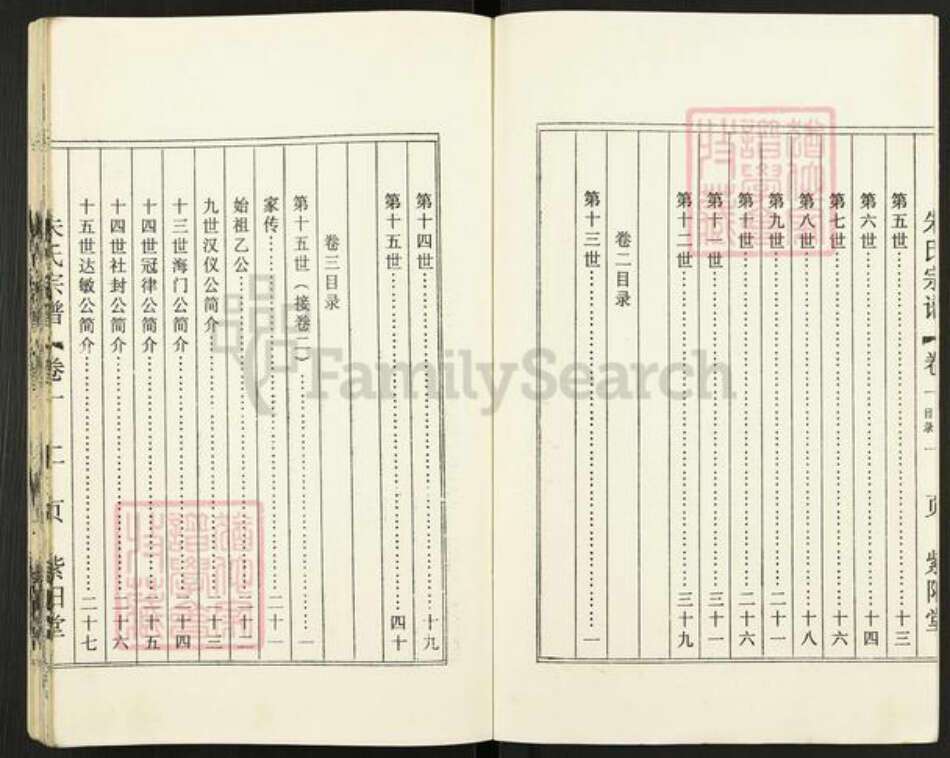 朱氏宗谱 卷一 目录 一 页 紫阳堂
第五世……十三
第六世……十四
第七世……十六
第八世……十八
第九世……二十一
第十世……二十六
第十一世……三十一
第十二世……三十九
卷二目录
第十三世……一
第十四世……十九
第十五世……四十
卷三目录
第十五世（接卷二）……一
家传……二十一
始祖乙公……二十二
九世汉仪公简介……二十三
十三世海门公简介……二十四
十四世冠律公简介……二十五
十四世社封公简介……二十六
十五世达敏公简介……二十七
朱氏宗谱 卷一 页 紫阳堂
FamilySearch